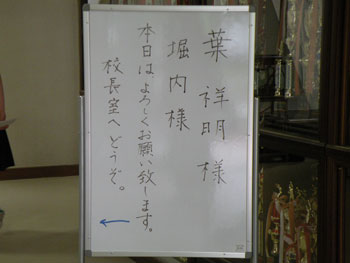 葉祥明様
堀内様
本日はよろしくお願い致します。
校長室へどうぞ。
←